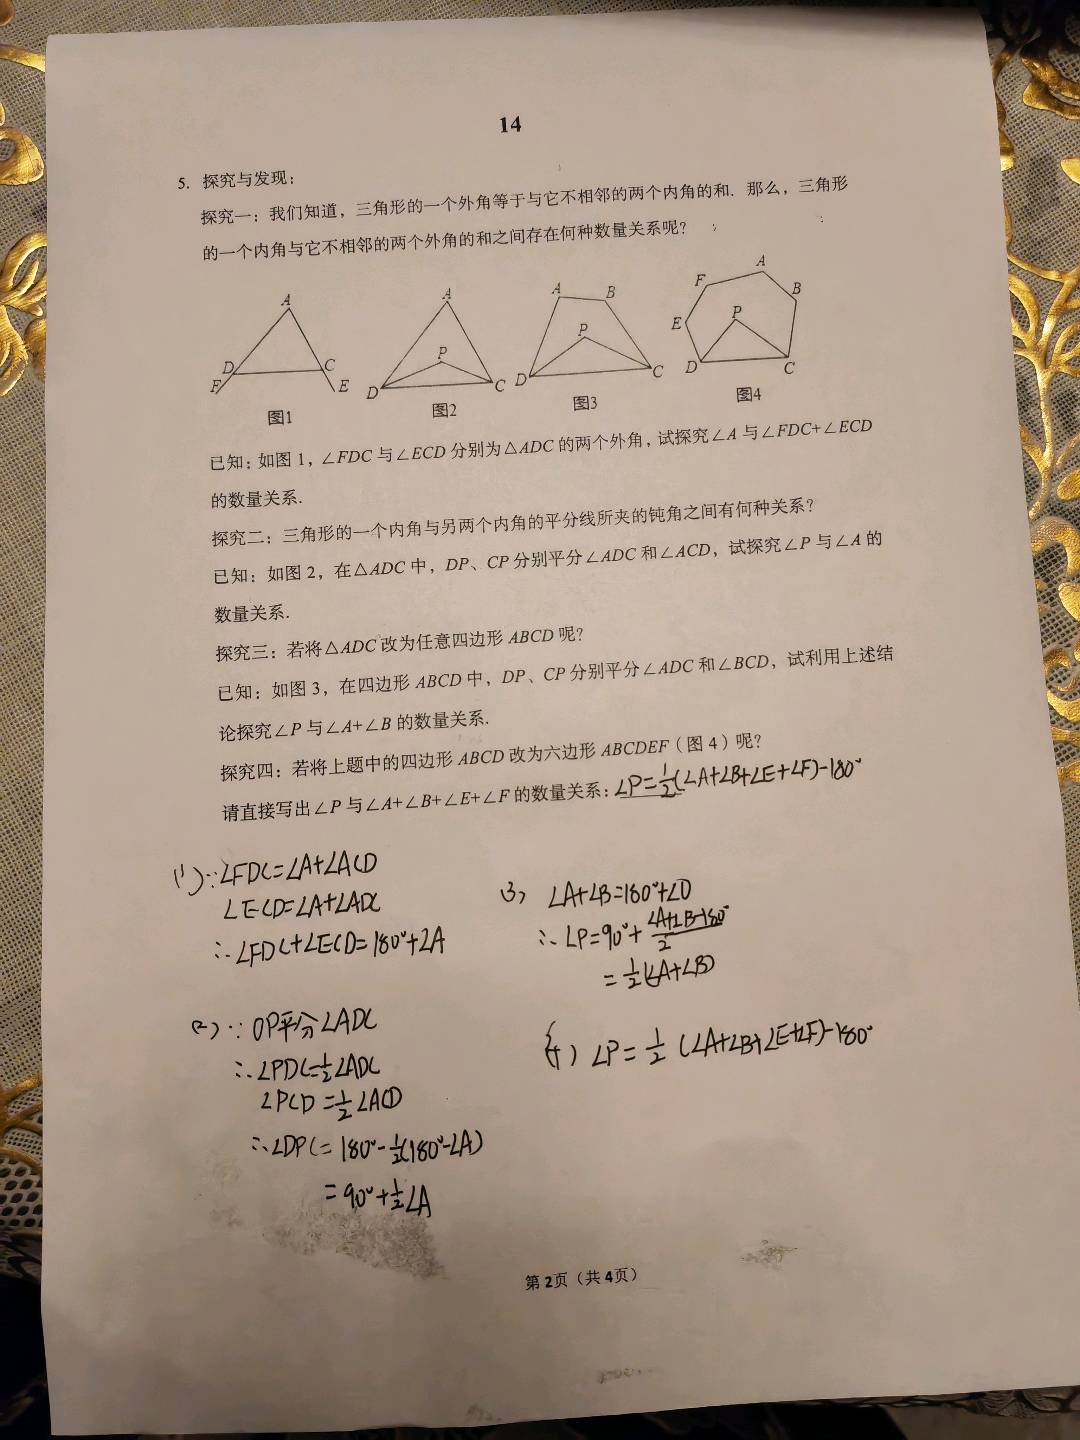 14
5. 探究与发现：
探究一：我们知道，三角形的一个外角等于与它不相邻的两个内角的和. 那么，三角形
的一个内角与它不相邻的两个外角的和之间存在何种数量关系呢？
A
D
C
F
E
图1
A
P
D
C
图2
A
B
P
D
C
图3
A
F
B
E
P
D
C
图4
已知：如图 1，∠FDC 与∠ECD 分别为△ADC 的两个外角，试探究∠A 与∠FDC+∠ECD
的数量关系.
探究二：三角形的一个内角与另两个内角的平分线所夹的钝角之间有何种关系？
已知：如图 2，在△ADC 中，DP、CP 分别平分∠ADC 和∠ACD，试探究∠P 与∠A 的
数量关系.
探究三：若将△ADC 改为任意四边形 ABCD 呢？
已知：如图 3，在四边形 ABCD 中，DP、CP 分别平分∠ADC 和∠BCD，试利用上述结
论探究∠P 与∠A+∠B 的数量关系.
探究四：若将上题中的四边形 ABCD 改为六边形 ABCDEF（图 4）呢？
请直接写出∠P 与∠A+∠B+∠E+∠F 的数量关系：∠P=1/2(∠A+∠B+∠E+∠F)-180°
(1)∵∠FDC=∠A+∠ACD
∠ECD=∠A+∠ADC
∴∠FDC+∠ECD=180°+∠A
(2)∵DP平分∠ADC
∴∠PDC=1/2∠ADC
∠PCD=1/2∠ACD
∴∠DPC=180°-1/2(180°-∠A)
=90°+1/2∠A
(3) ∠A+∠B=180°+∠O
∴∠P=90°+(∠A+∠B-180°)/2
=1/2(∠A+∠B)
(4) ∠P=1/2(∠A+∠B+∠E+∠F)-180°
第 2页（共 4页）